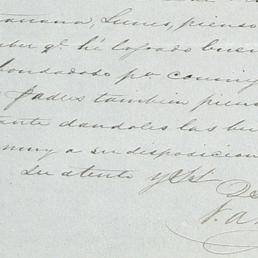 mañana, Lunes, pienso
ber qe. hé logrado buen
bondadoso pa. conmig
Padres tambien piens
tante dandoles las bu
muy a su disposicion
Su atento y SS